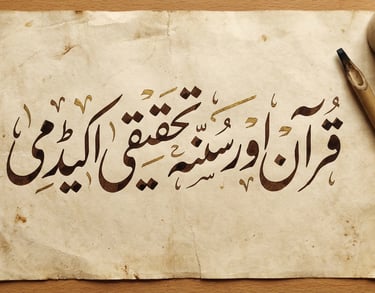 قُرآن اور سُنّہ تحقیقی اکیڈمی